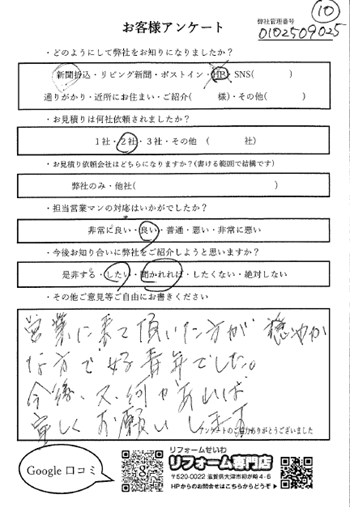 ⑩
お客様アンケート
弊社管理番号
0102509025
・どのようにして弊社をお知りになりましたか？
新聞折込・リビング新聞・ポストイン・HP・SNS(　　　)
通りがかり・近所にお住まい・ご紹介(　　　様)・その他(　　　)
・お見積りは何社依頼されましたか？
1社・2社・3社・その他（　　　社）
・お見積り依頼会社はどちらになりますか？(書ける範囲で結構です)
弊社のみ・他社(　　　)
・担当営業マンの対応はいかがでしたか？
非常に良い・良い・普通・悪い・非常に悪い
・今後お知り合いに弊社をご紹介しようと思いますか？
是非する・したい・聞かれれば・したくない・絶対しない
・その他ご意見等ご自由にお書きください
営業に来て頂いた方が 穏やか
な方で好青年でした。
今後、又、何かあれば
宜しくお願いします
アンケートのご協力ありがとうございました
Google口コミ
リフォームせいわ
リフォーム専門店
〒520-0022 滋賀県大津市柳が崎4-6
HPからのお問合せはこちらからどうぞ▶